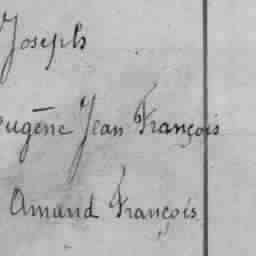 Joseph
Eugène Jean François
Amand François